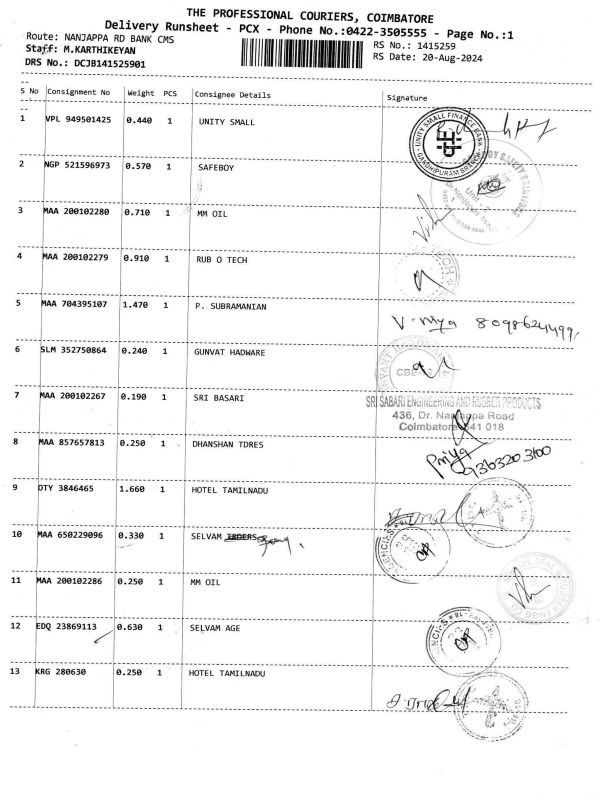 THE PROFESSIONAL COURIERS, COIMBATORE
Delivery Runsheet - PCX - Phone No.:0422-3505555 - Page No.:1
Route: NANJAPPA RD BANK CMS
Staff: M.KARTHIKEYAN
DRS No.: DCJB141525901
RS No.: 1415259
RS Date: 20-Aug-2024
S No Consignment No Weight PCS Consignee Details Signature
1 VPL 949501425 0.440 1 UNITY SMALL
UNITY SMALL FINANCE BANK
GANDHIPURAM BRANCH
2 NGP 521596973 0.570 1 SAFEBOY
3 MAA 200102280 0.710 1 MM OIL
4 MAA 200102279 0.910 1 RUB O TECH
5 MAA 704395107 1.470 1 P. SUBRAMANIAN
6 SLM 352750864 0.240 1 GUNVAT HADWARE
CBE
7 MAA 200102267 0.190 1 SRI BASARI
SRI SABARI ENGINEERING AND RUBBER PRODUCTS
436, Dr. Nanjappa Road
Coimbatore 641 018
8 MAA 857657813 0.250 1 DHANSHAN TDRES
Priya
9363203100
9 OTY 3846465 1.660 1 HOTEL TAMILNADU
10 MAA 650229096 0.330 1 SELVAM
11 MAA 200102286 0.250 1 MM OIL
12 EDQ 23869113 0.630 1 SELVAM AGE
13 KRG 280630 0.250 1 HOTEL TAMILNADU